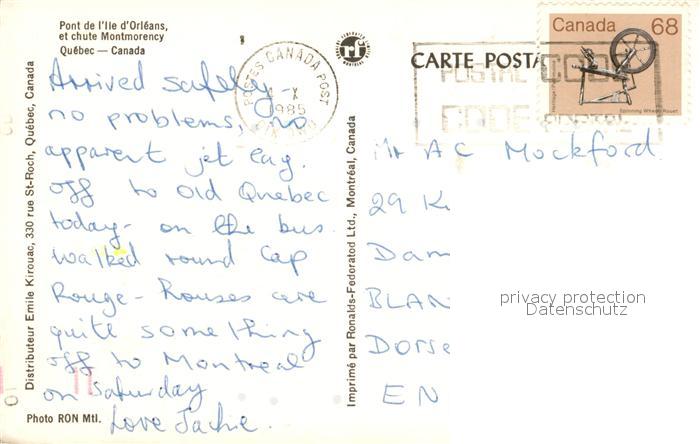 Pont de l'Ile d'Orléans,
et chute Montmorency
Québec — Canada
Arrived safely -
no problems, no
apparent jet lag.
off to Old Quebec
today - on the bus.
walked round Cap
Rouge - houses are
quite something
off to Montreal
on Saturday
Love Jackie.
Photo RON Mtl.
Distributeur Emile Kirouac, 330 rue St-Roch, Québec, Canada
Imprimé par Ronalds-Federated Ltd., Montréal, Canada
POSTES CANADA POST
X
1985
CARTE POSTA
POSTAL CODE
CODE POSTAL
Canada 68
Spinning Wheel Rouet
Mr A C Mockford
29 K
Dam
BLAN
Dorse
EN
privacy protection
Datenschutz